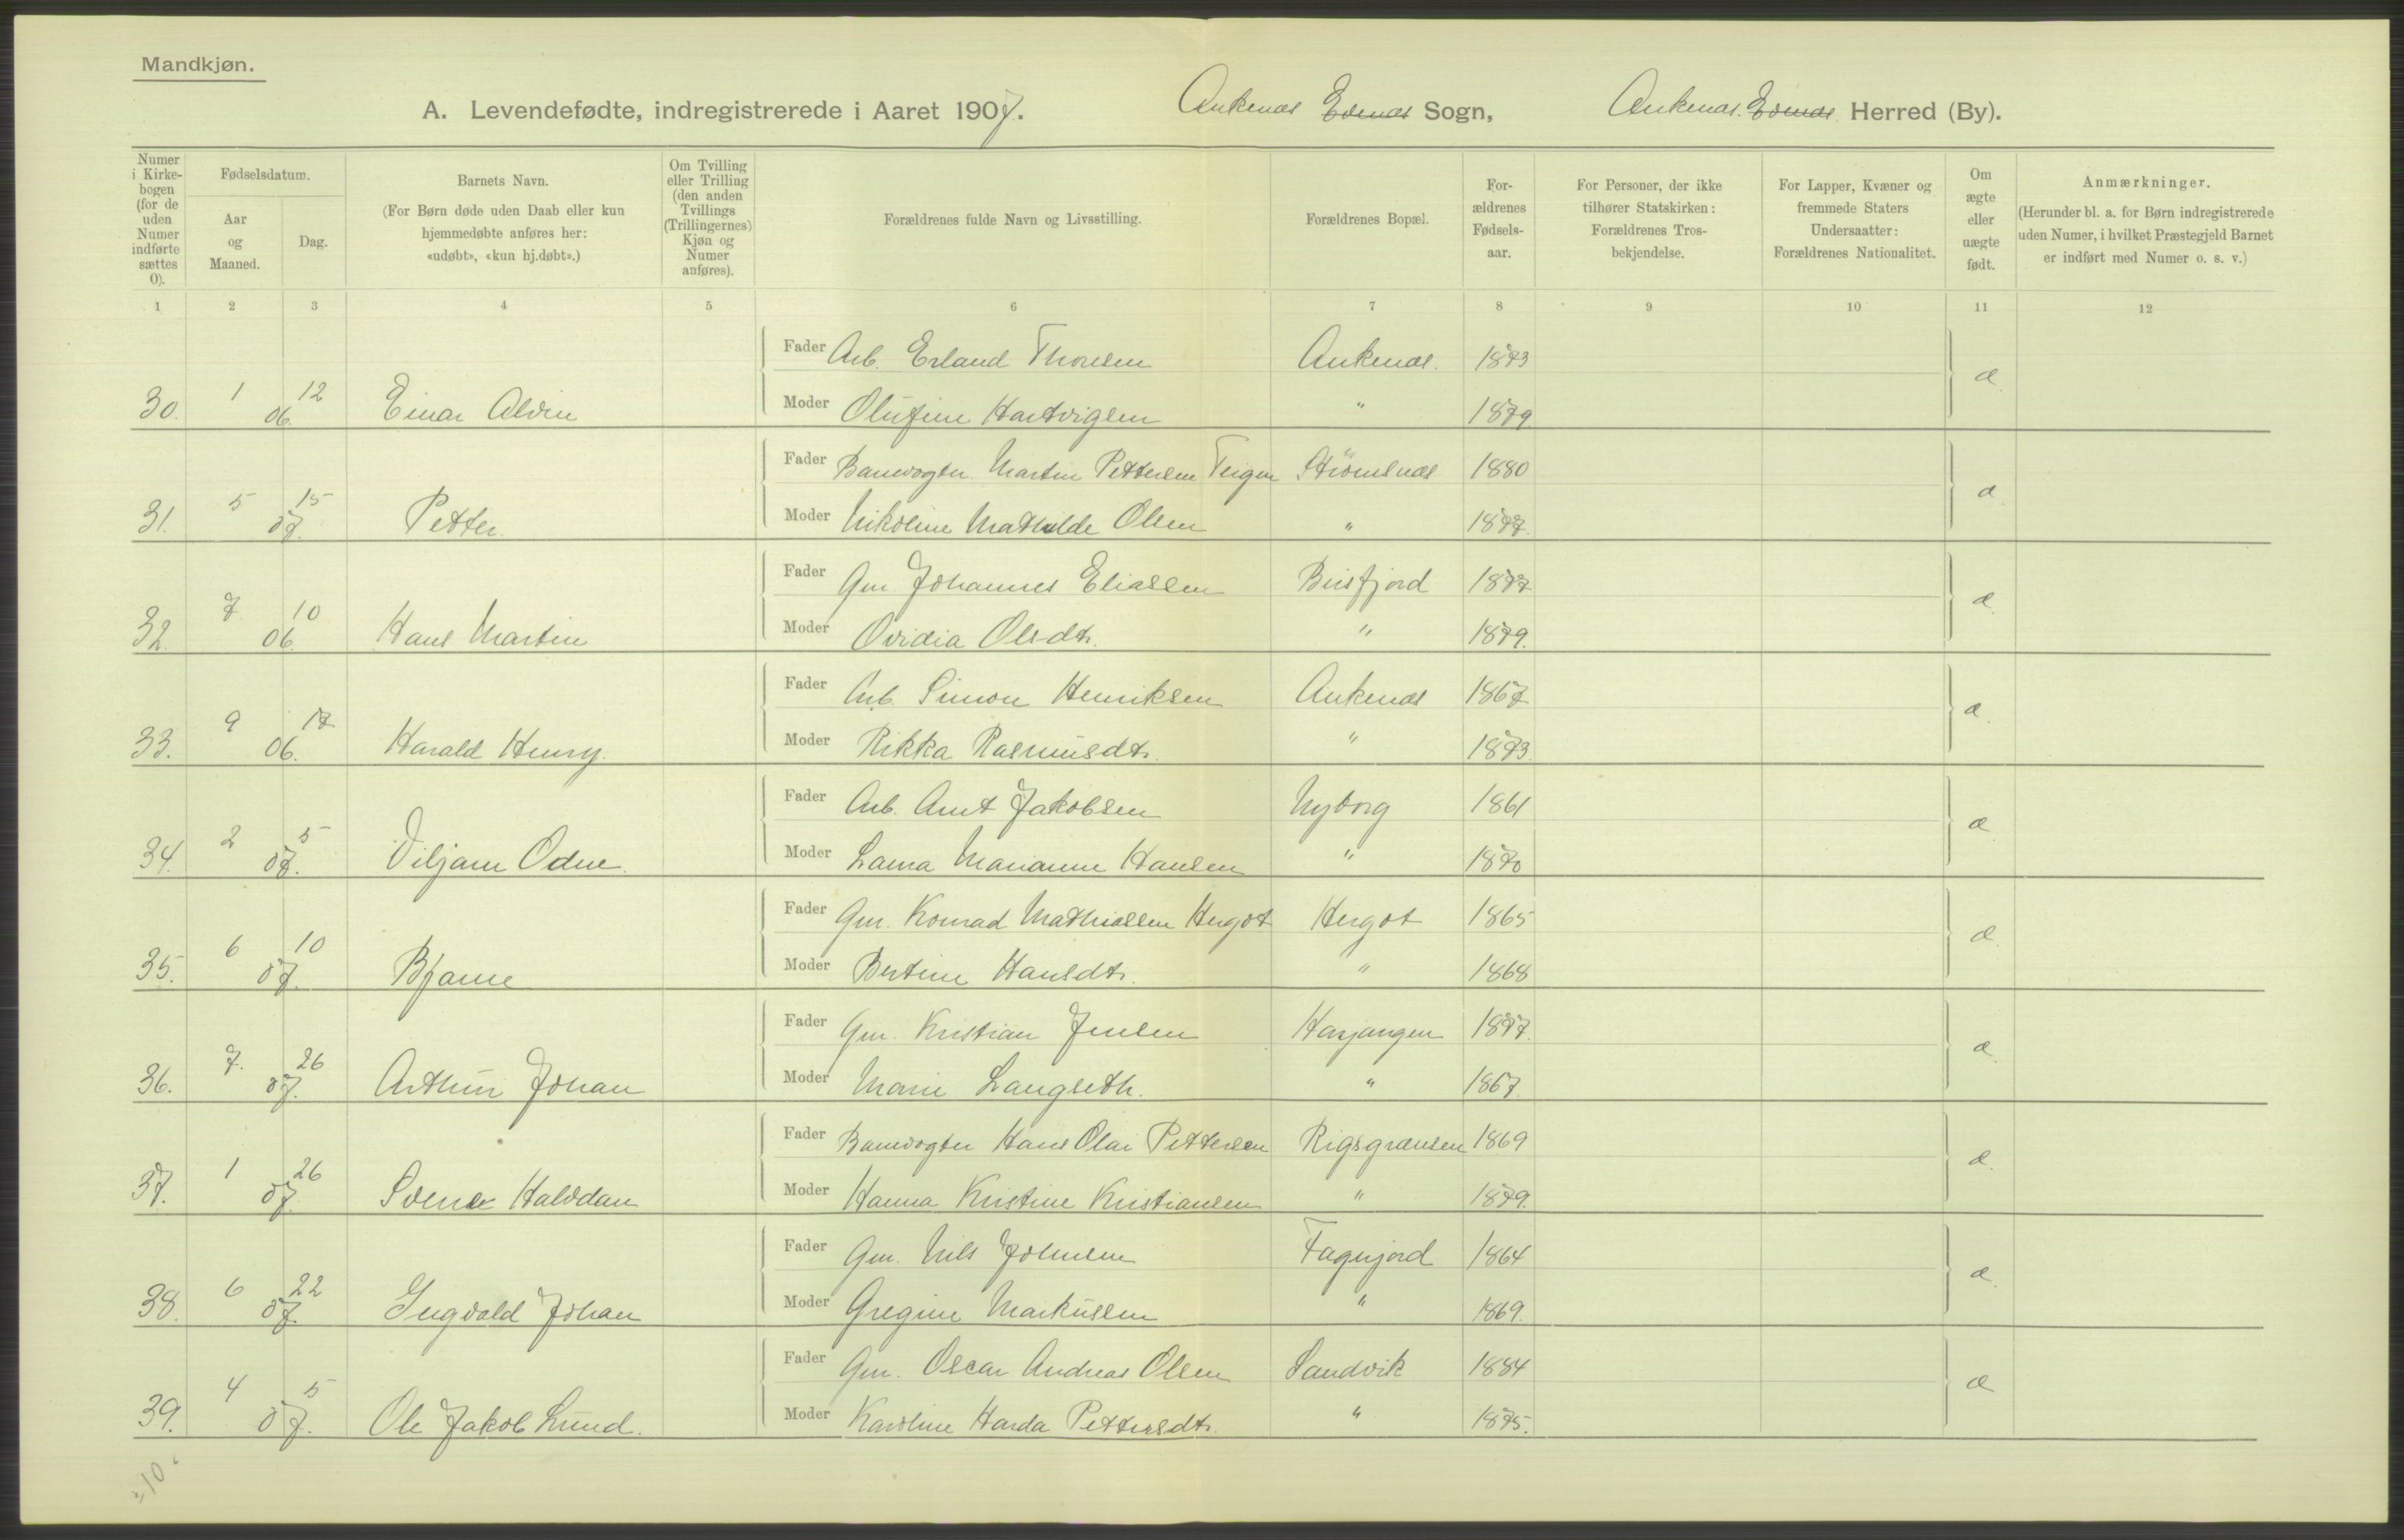 Mandkjøn.
A. Levendefødte, indregistrerede i Aaret 1907. Ankenæs Evenæs Sogn, Ankenæs. Evenæs Herred (By).
Numer i Kirke-bogen (for de uden Numer indførte sættes 0).
Fødselsdatum.
Aar og Maaned.
Dag.
Barnets Navn.
(For Børn døde uden Daab eller kun hjemmedøbte anføres her: «udøbt», «kun hj.døbt».)
Om Tvilling eller Trilling (den anden Tvillings (Trillingernes) Kjøn og Numer anføres).
Forældrenes fulde Navn og Livsstilling.
Forældrenes Bopæl.
For-ældrenes Fødsels-aar.
For Personer, der ikke tilhører Statskirken: Forældrenes Tros-bekjendelse.
For Lapper, Kvæner og fremmede Staters Undersaatter: Forældrenes Nationalitet.
Om ægte eller uægte født.
Anmærkninger.
(Herunder bl. a. for Børn indregistrerede uden Numer, i hvilket Præstegjeld Barnet er indført med Numer o. s. v.)
1 2 3 4 5 6 7 8 9 10 11 12
Fader Arb. Erland Thoresen Ankenæs. 1873
30. 1 06. 12 Einar Alvin Moder Olufine Hartvigsen " 1879 æ
Fader Banevogter Martin Pettersen Teigen Strömsnæs 1880
31. 5 07. 15 Petter. Moder Nikoline Mathilde Olsen " 1877. æ
Fader Gm Johannes Eliassen Beisfjord 1877
32. 7. 06. 10 Hans Martin Moder Ovidia Olsdtr. " 1879. æ
Fader Arb. Simon Henriksen Ankenæs 1867
33. 9 06. 17 Harald Henry. Moder Rikka Rasmusdtr. " 1873 æ
Fader Arb. Arnt Jakobsen Nyborg 1861
34. 2 07. 5 Viljam Odin. Moder Laura Marianne Hansen " 1870 æ
Fader Gm. Konrad Mathiassen Hergot Hergot 1865
35. 6 07. 10 Bjarne Moder Bertine Hansdtr. " 1868 æ
Fader Gm. Kristian Jensen Herjangen 1877.
36. 7. 07. 26 Arthur Johan Moder Marie Langseth. " 1867. æ
Fader Banevogter Hans Olai Pettersen Rigsgrænsen 1869
37. 1 07. 26 Sverre Halvdan Moder Hanna Kristine Kristiansen " 1879. æ
Fader Gm. Nils Johnsen Fagerjord 1864
38. 6 07. 22 Ingvald Johan Moder Gregine Markussen " 1869. æ
Fader Gm. Oscar Andreas Olsen Sandvik 1884
39. 4 07. 5 Ole Jakob Lund. Moder Karoline Harda Pettersdtr. " 1875. æ
10